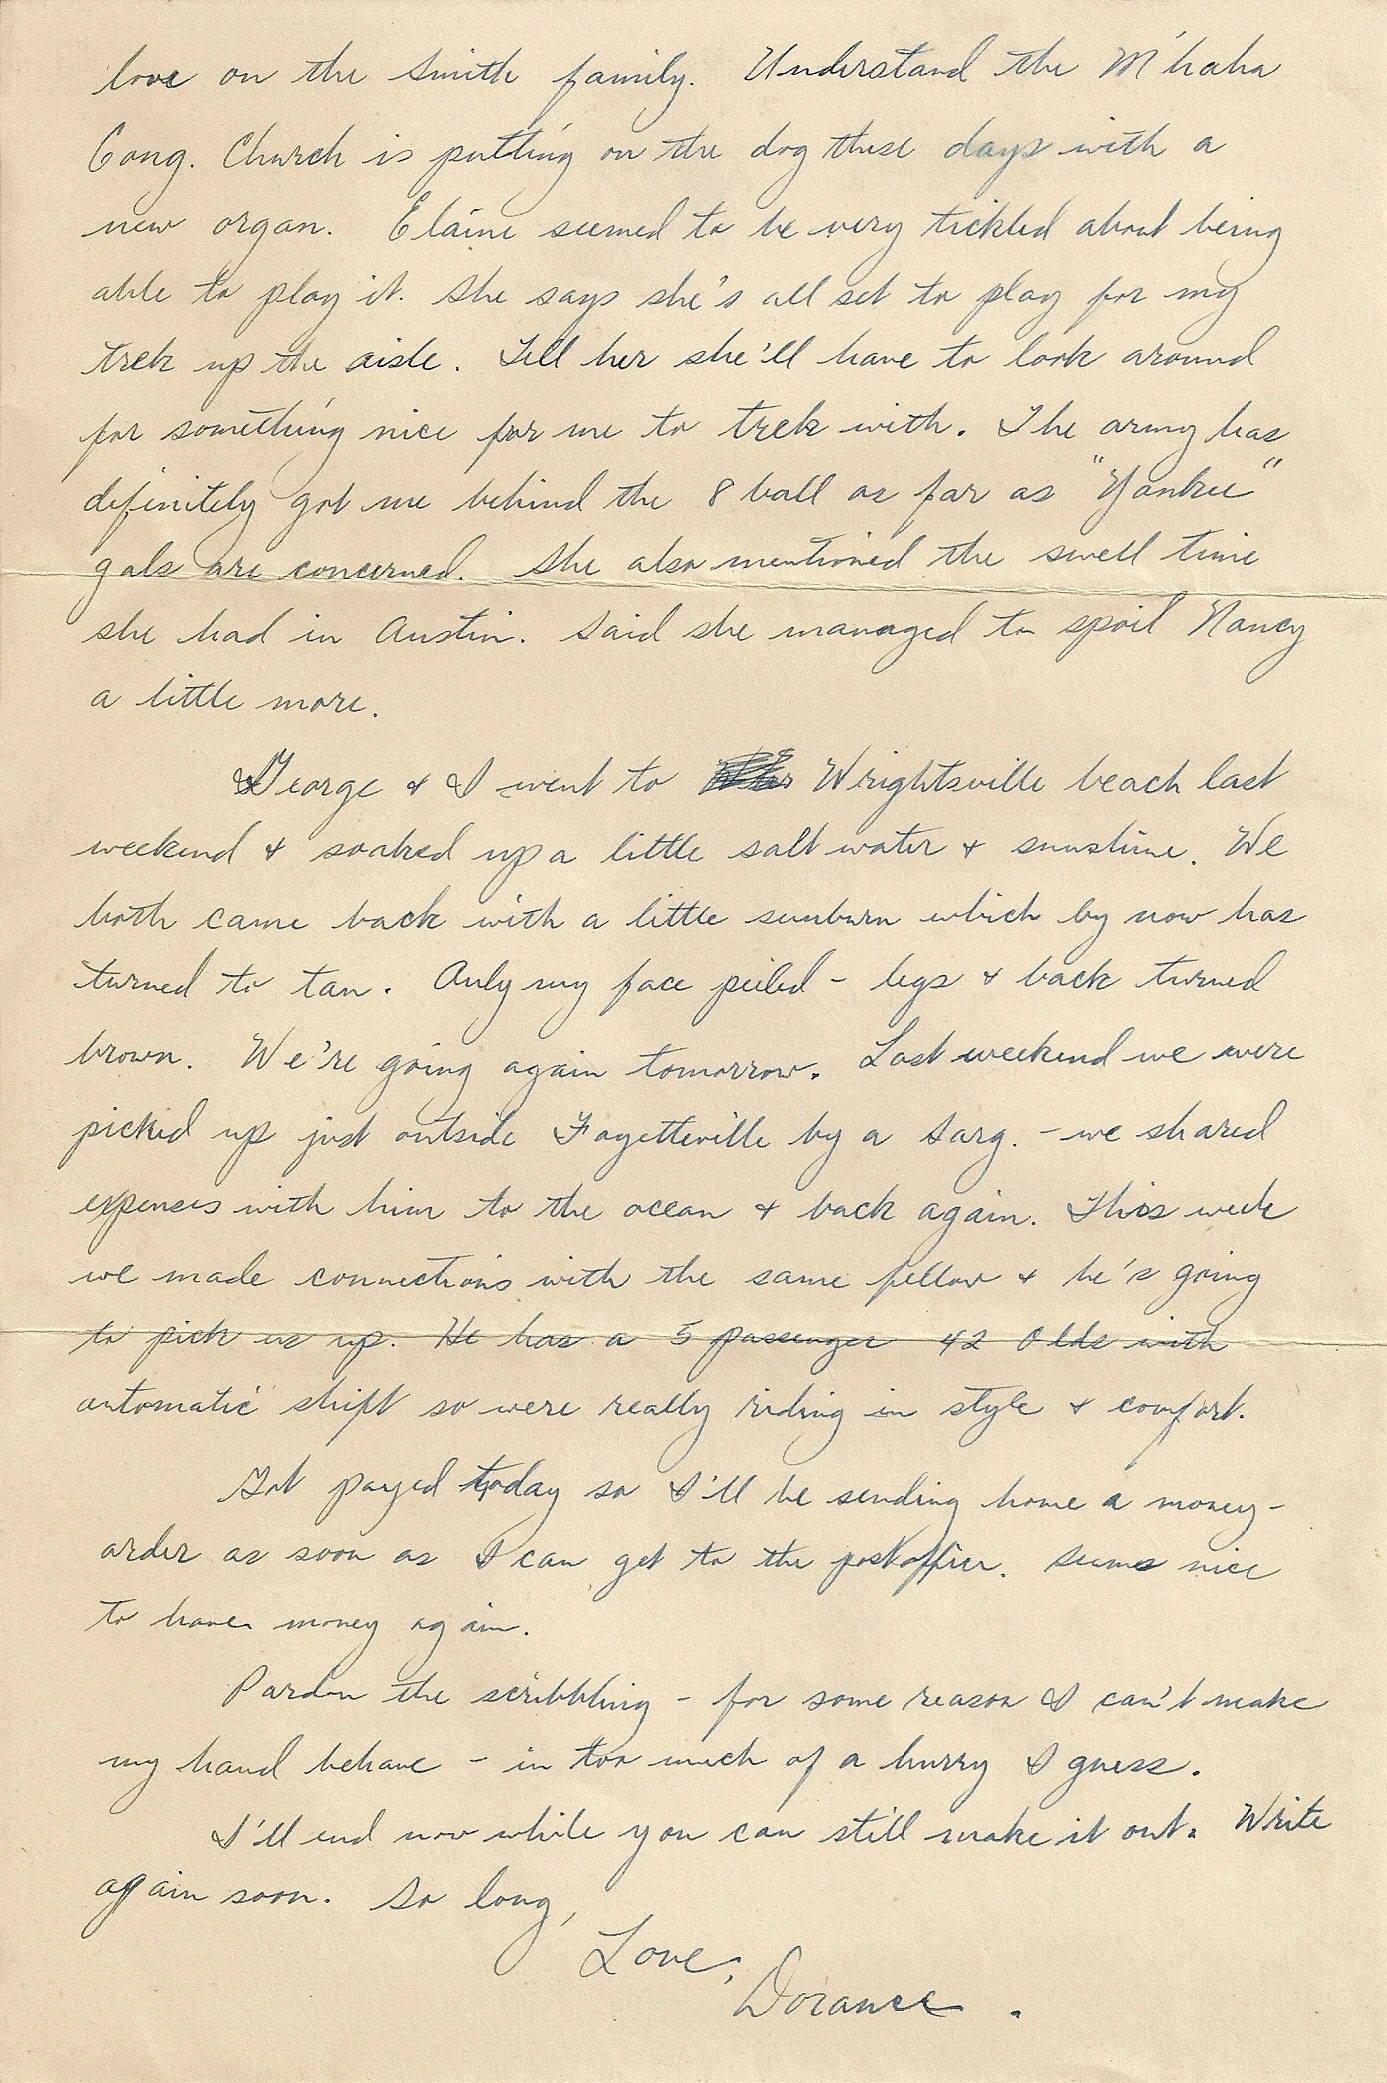 love on the Smith family. Understand the M'haha
Cong. Church is putting on the dog these days with a
new organ. Elaine seemed to be very tickled about being
able to play it. She says she's all set to play for my
trek up the aisle. Tell her she'll have to look around
for something nice for me to trek with. The army has
definitely got me behind the 8 ball as far as "Yankee"
gals are concerned. She also mentioned the swell time
she had in Austin. Said she managed to spoil Nancy
a little more.
George & I went to Wrightsville beach last
weekend & soaked up a little salt water & sunshine. We
both came back with a little sunburn which by now has
turned to tan. Only my face peeled - legs & back turned
brown. We're going again tomorrow. Last weekend we were
picked up just outside Fayetteville by a Sarg. - we shared
expenses with him to the ocean & back again. This week
we made connections with the same fellow & he's going
to pick us up. He has a 5 passenger 42 Olds with
automatic shift so were really riding in style & comfort.
Got payed today so I'll be sending home a money-
order as soon as I can get to the postoffice. Seems nice
to have money again.
Pardon the scribbling - for some reason I can't make
my hand behave - in too much of a hurry I guess.
I'll end now while you can still make it out. Write
again soon. So long,
Love,
Dorance.